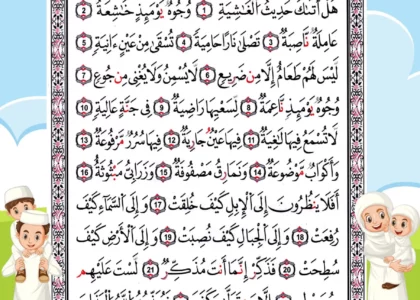 هَلْ أَتَىٰكَ حَدِيثُ الْغَٰشِيَةِ ١ وُجُوهٌ يَوْمَئِذٍ خَٰشِعَةٌ ٢
عَامِلَةٌ نَّاصِبَةٌ ٣ تَصْلَىٰ نَارًا حَامِيَةً ٤ تُسْقَىٰ مِنْ عَيْنٍ ءَانِيَةٍ ٥
لَّيْسَ لَهُمْ طَعَامٌ إِلَّا مِن ضَرِيعٍ ٦ لَّا يُسْمِنُ وَلَا يُغْنِى مِن جُوعٍ ٧
وُجُوهٌ يَوْمَئِذٍ نَّاعِمَةٌ ٨ لِّسَعْيِهَا رَاضِيَةٌ ٩ فِى جَنَّةٍ عَالِيَةٍ ١٠
لَّا تَسْمَعُ فِيهَا لَٰغِيَةً ١١ فِيهَا عَيْنٌ جَارِيَةٌ ١٢ فِيهَا سُرُرٌ مَّرْفُوعَةٌ ١٣
وَأَكْوَابٌ مَّوْضُوعَةٌ ١٤ وَنَمَارِقُ مَصْفُوفَةٌ ١٥ وَزَرَابِىُّ مَبْثُوثَةٌ ١٦
أَفَلَا يَنظُرُونَ إِلَى الْإِبِلِ كَيْفَ خُلِقَتْ ١٧ وَإِلَى السَّمَآءِ كَيْفَ
رُفِعَتْ ١٨ وَإِلَى الْجِبَالِ كَيْفَ نُصِبَتْ ١٩ وَإِلَى الْأَرْضِ كَيْفَ
سُطِحَتْ ٢٠ فَذَكِّرْ إِنَّمَآ أَنتَ مُذَكِّرٌ ٢١ لَّسْتَ عَلَيْهِم